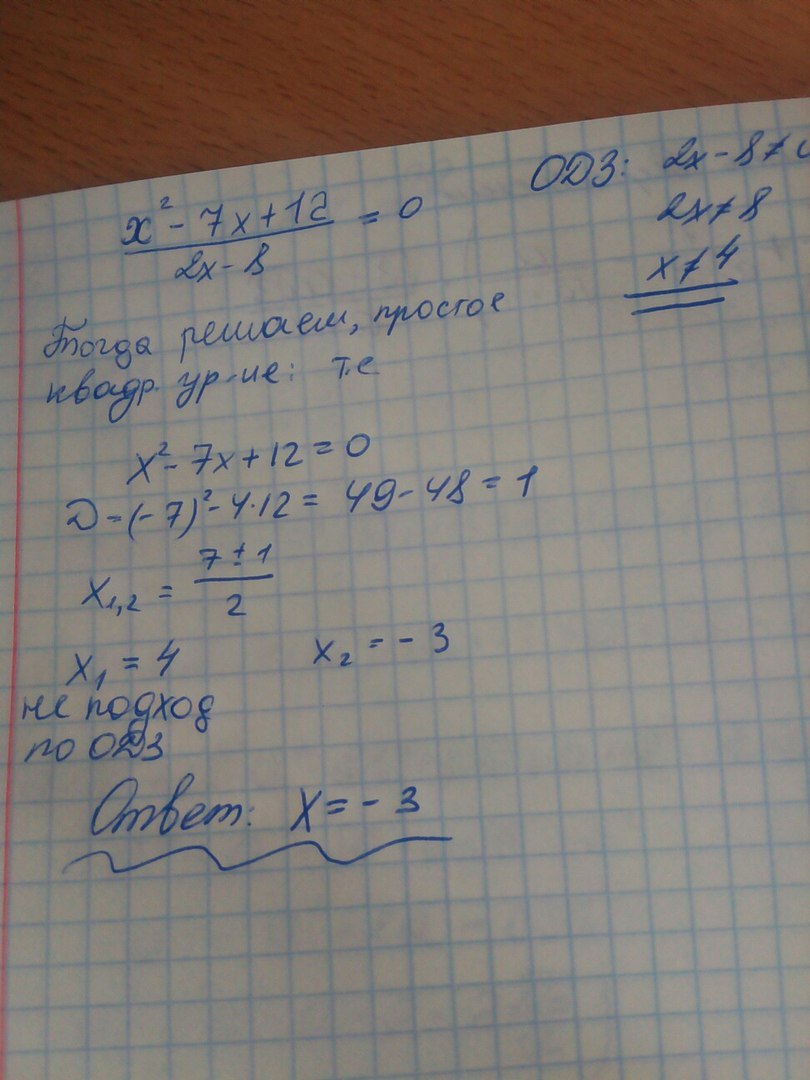 x² - 7x + 12 / 2x - 8 = 0
ОДЗ: 2x - 8 ≠
2x ≠ 8
x ≠ 4
Тогда решаем, простое
квадр. ур-ие: т.е
x² - 7x + 12 = 0
D = (-7)² - 4·12 = 49 - 48 = 1
x₁,₂ = 7 ± 1 / 2
x₁ = 4 x₂ = - 3
не подход
по ОДЗ
Ответ: X = - 3